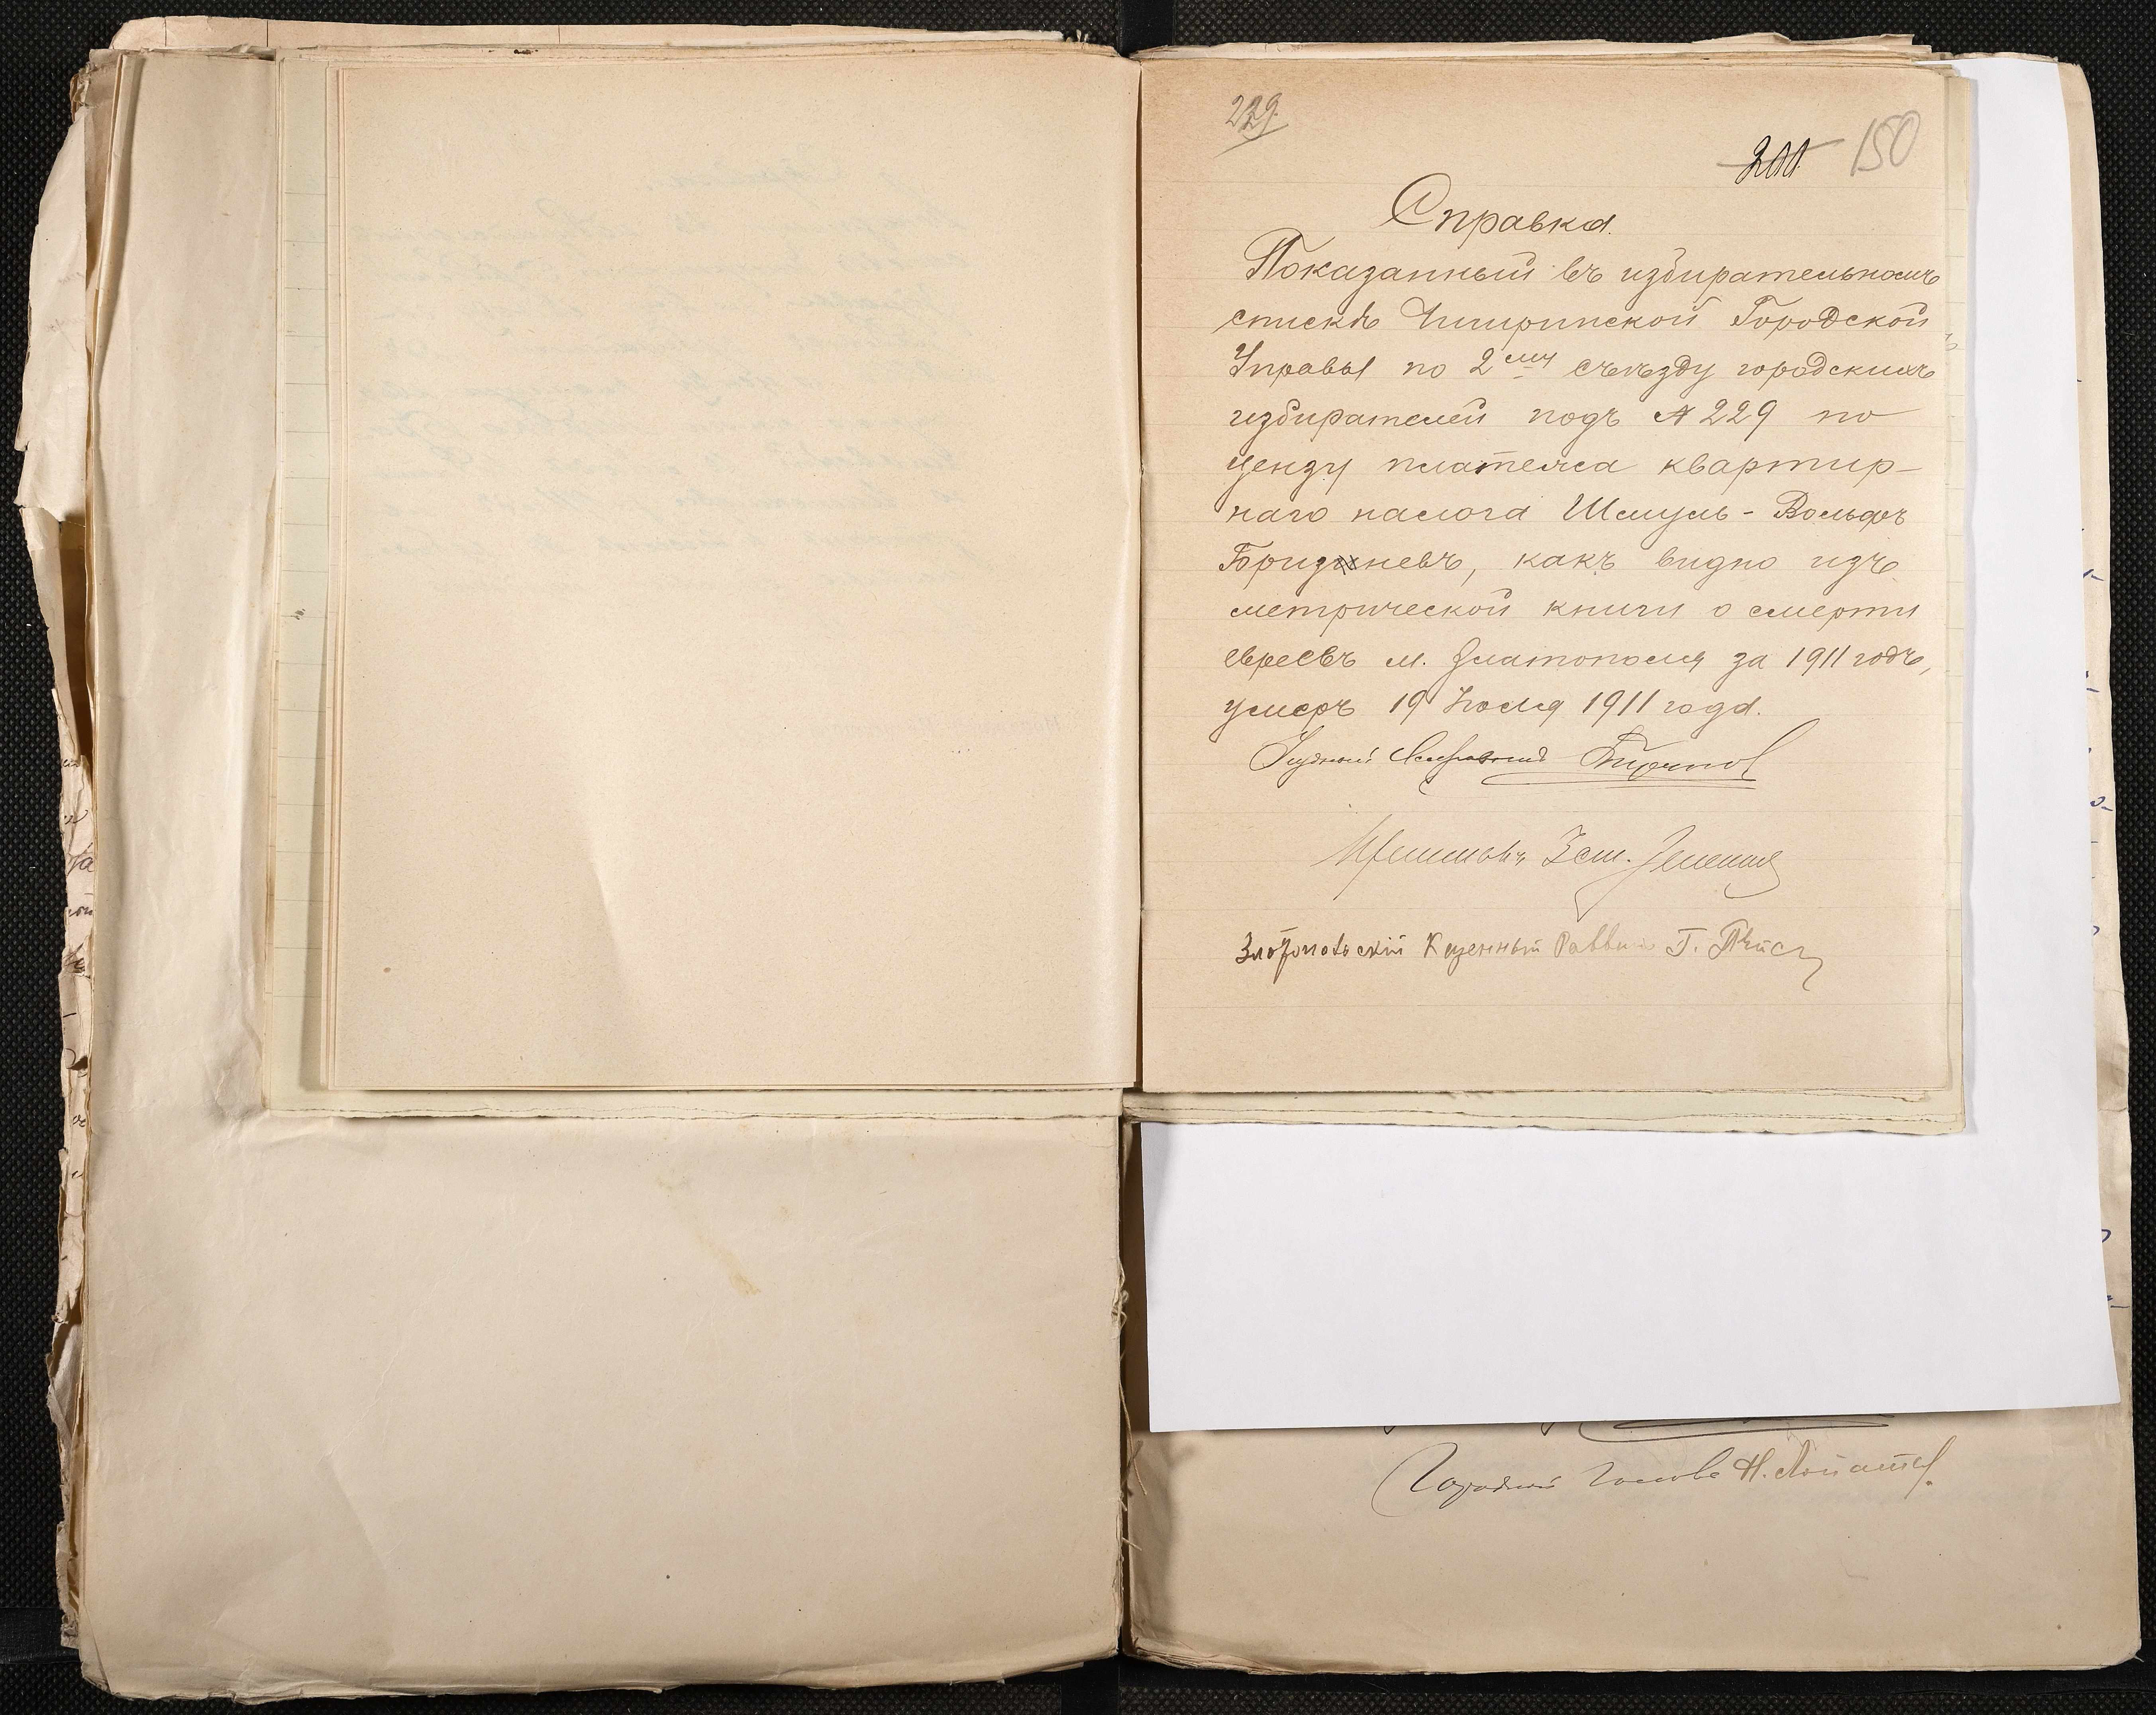 229.
200 150
Справка.
Показанный въ избирательномъ
спискѣ Чигиринской Городской
Управы по 2му съѣзду городскихъ
избирателей подъ № 229 по
цензу плательса квартир-
наго налога Шмуль-Вольфъ
Бризневъ, какъ видно изъ
метрической книги о смерти
евреевъ м. Златополя за 1911 годъ,
умеръ 19 Іюля 1911 года.
Уѣздный
Зем.
Златопольскій Казенный Раввинъ Г.
Городской Голова Н.